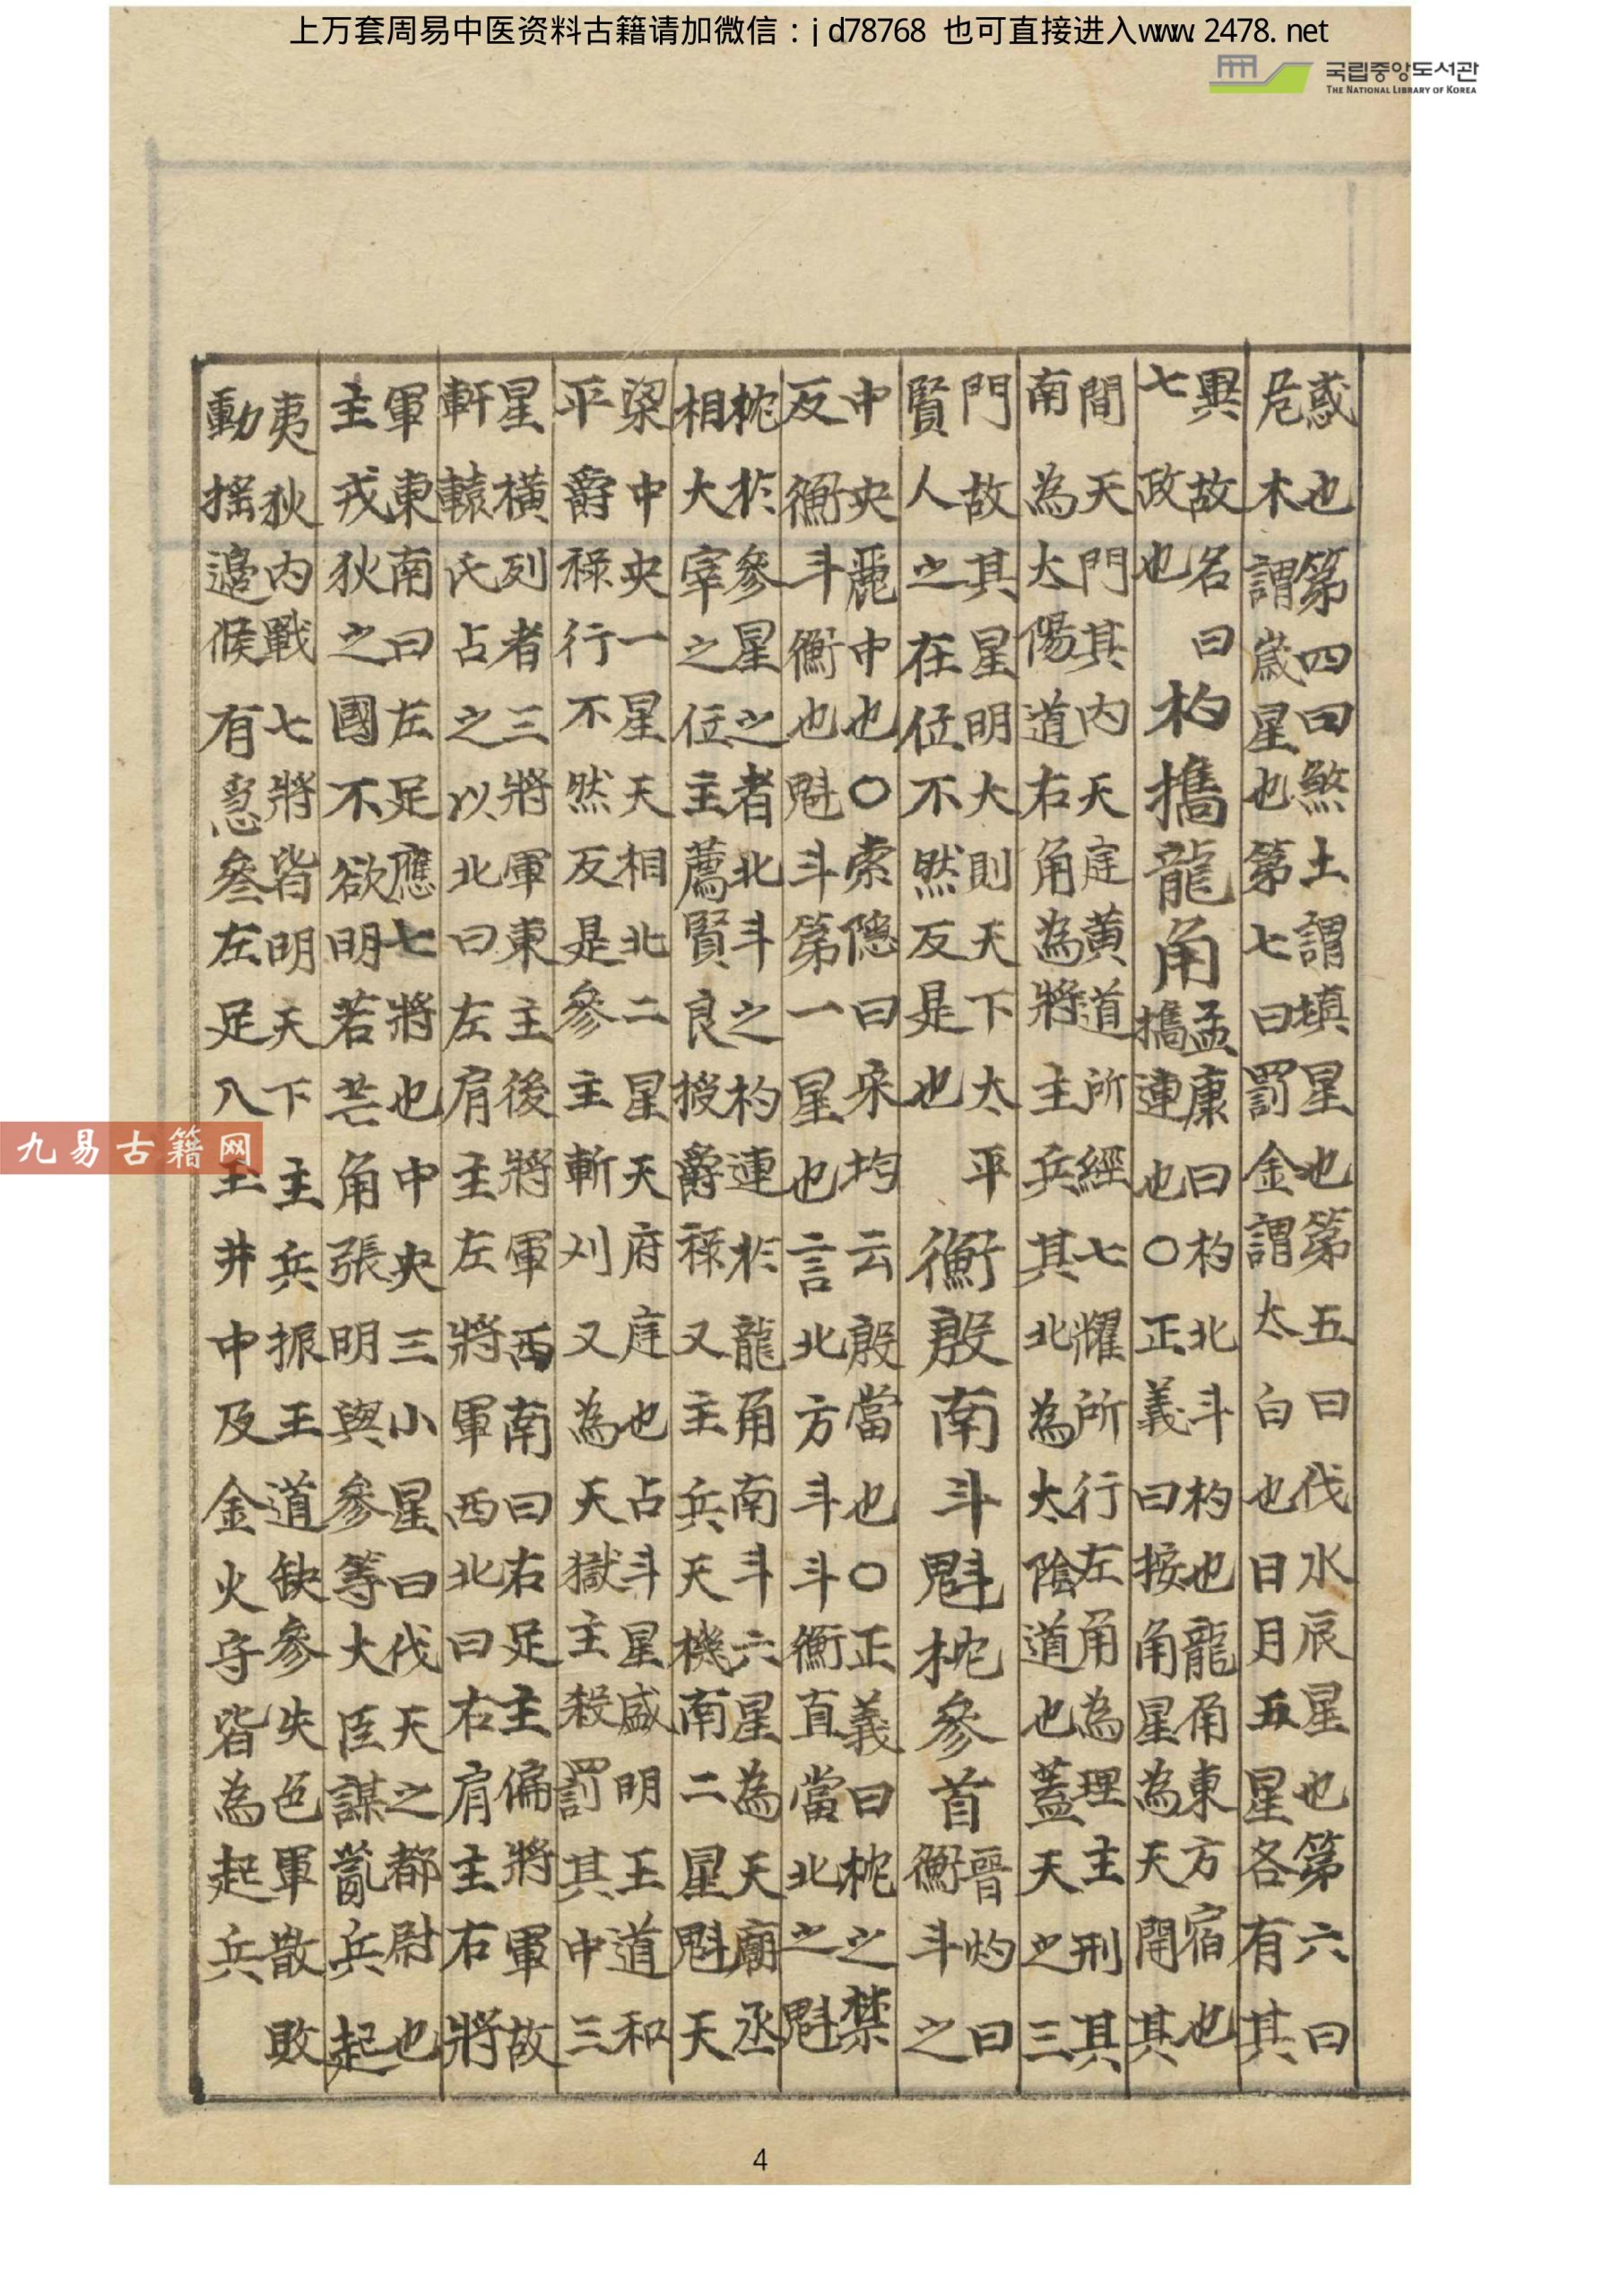 上万套周易中医资料古籍请加微信：jd78768 也可直接进入www.2478.net
국립중앙도서관
THE NATIONAL LIBRARY OF KOREA
惑也第四曰煞土謂填星也第五曰伐水辰星也第六曰
危木謂歲星也第七曰罰金謂太白也日月五星各有其
異故名曰
七政也
杓攜龍角
孟康曰杓北斗杓也龍角東方宿也
攜連也○正義曰按角星為天關其
間天門其內天庭黃道所經七耀所行左角為理主刑其
南為太陽道右角為將主兵其北為太陰道也蓋天之三
門故其星明大則天下太平
賢人之在位不然反是也
衡殷南斗魁枕參首
晉灼曰
衡斗之
中央麗中也○索隱曰宋均云殷當也○正義曰枕之禁
反衡斗衡也魁斗第一星也言北方斗斗衡直當北之魁
枕於參星之者北斗之杓連於龍角南斗六星為天廟丞
相大宰之位主薦賢良授爵祿又主兵天機南二星魁天
梁中央一星天相北二星天府庭也占斗星盛明王道和
平爵祿行不然反是參主斬刈又為天獄主殺罰其中三
星橫列者三將軍東主後將軍西南曰右足主偏將軍故
軒轅氏占之以北曰左肩主左將軍西北曰右肩主右將
軍東南曰左足應七將也中央三小星曰伐天之都尉也
主戎狄之國不欲明若芒角張明與參等大臣謀亂兵起
夷狄內戰七將皆明天下主兵振王道缺參失色軍散敗
動搖邊候有急參左足入玉井中及金火守皆為起兵
九易古籍网
4